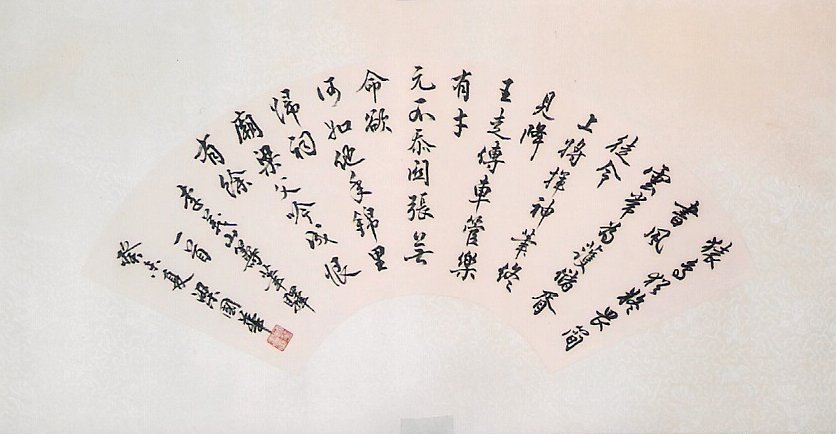 猿鳥猶疑畏簡
書風
雲常為護儲胥
徒令
上將揮神筆終
見降
王走傳車管樂
有才
元不忝關張無
命欲
何如他年錦里
歸祠
廟梁父吟成恨
有餘
李義山籌筆驛
一首
癸未夏梁國華